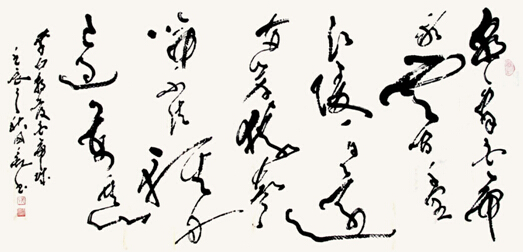 朝辞白帝
彩云间千里
江陵一日还
两岸猿声
啼不住轻舟
已过万重山
李白早发白帝城
壬辰之秋